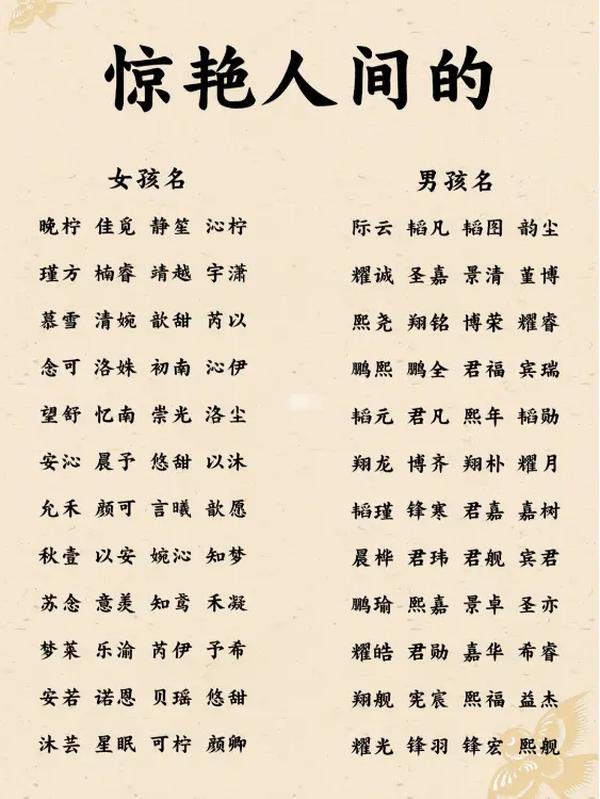 惊艳人间的
女孩名
晚柠 佳觅 静笙 沁柠
瑾方 楠睿 靖越 宇潇
慕雪 清婉 歆甜 芮以
念可 洛姝 初南 沁伊
望舒 忆南 崇光 洛尘
安沁 晨予 悠甜 以沐
允禾 颜可 言曦 歆愿
秋壹 以安 婉沁 知梦
苏念 意羡 知鸢 禾凝
梦莱 乐渝 芮伊 予希
安若 诺恩 贝瑶 悠甜
沐芸 星眠 可柠 颜卿
男孩名
际云 韬凡 韬图 韵尘
耀诚 圣嘉 景清 堇博
熙尧 翔铭 博荣 耀睿
鹏熙 鹏全 君福 宾瑞
韬元 君凡 熙年 韬勋
翔龙 博齐 翔朴 耀月
韬瑾 锋寒 君嘉 嘉树
晨桦 君玮 君舰 宾君
鹏瑜 熙嘉 景卓 圣亦
耀皓 君勋 嘉华 希睿
翔舰 宪宸 熙福 益杰
耀光 锋羽 锋宏 熙舰